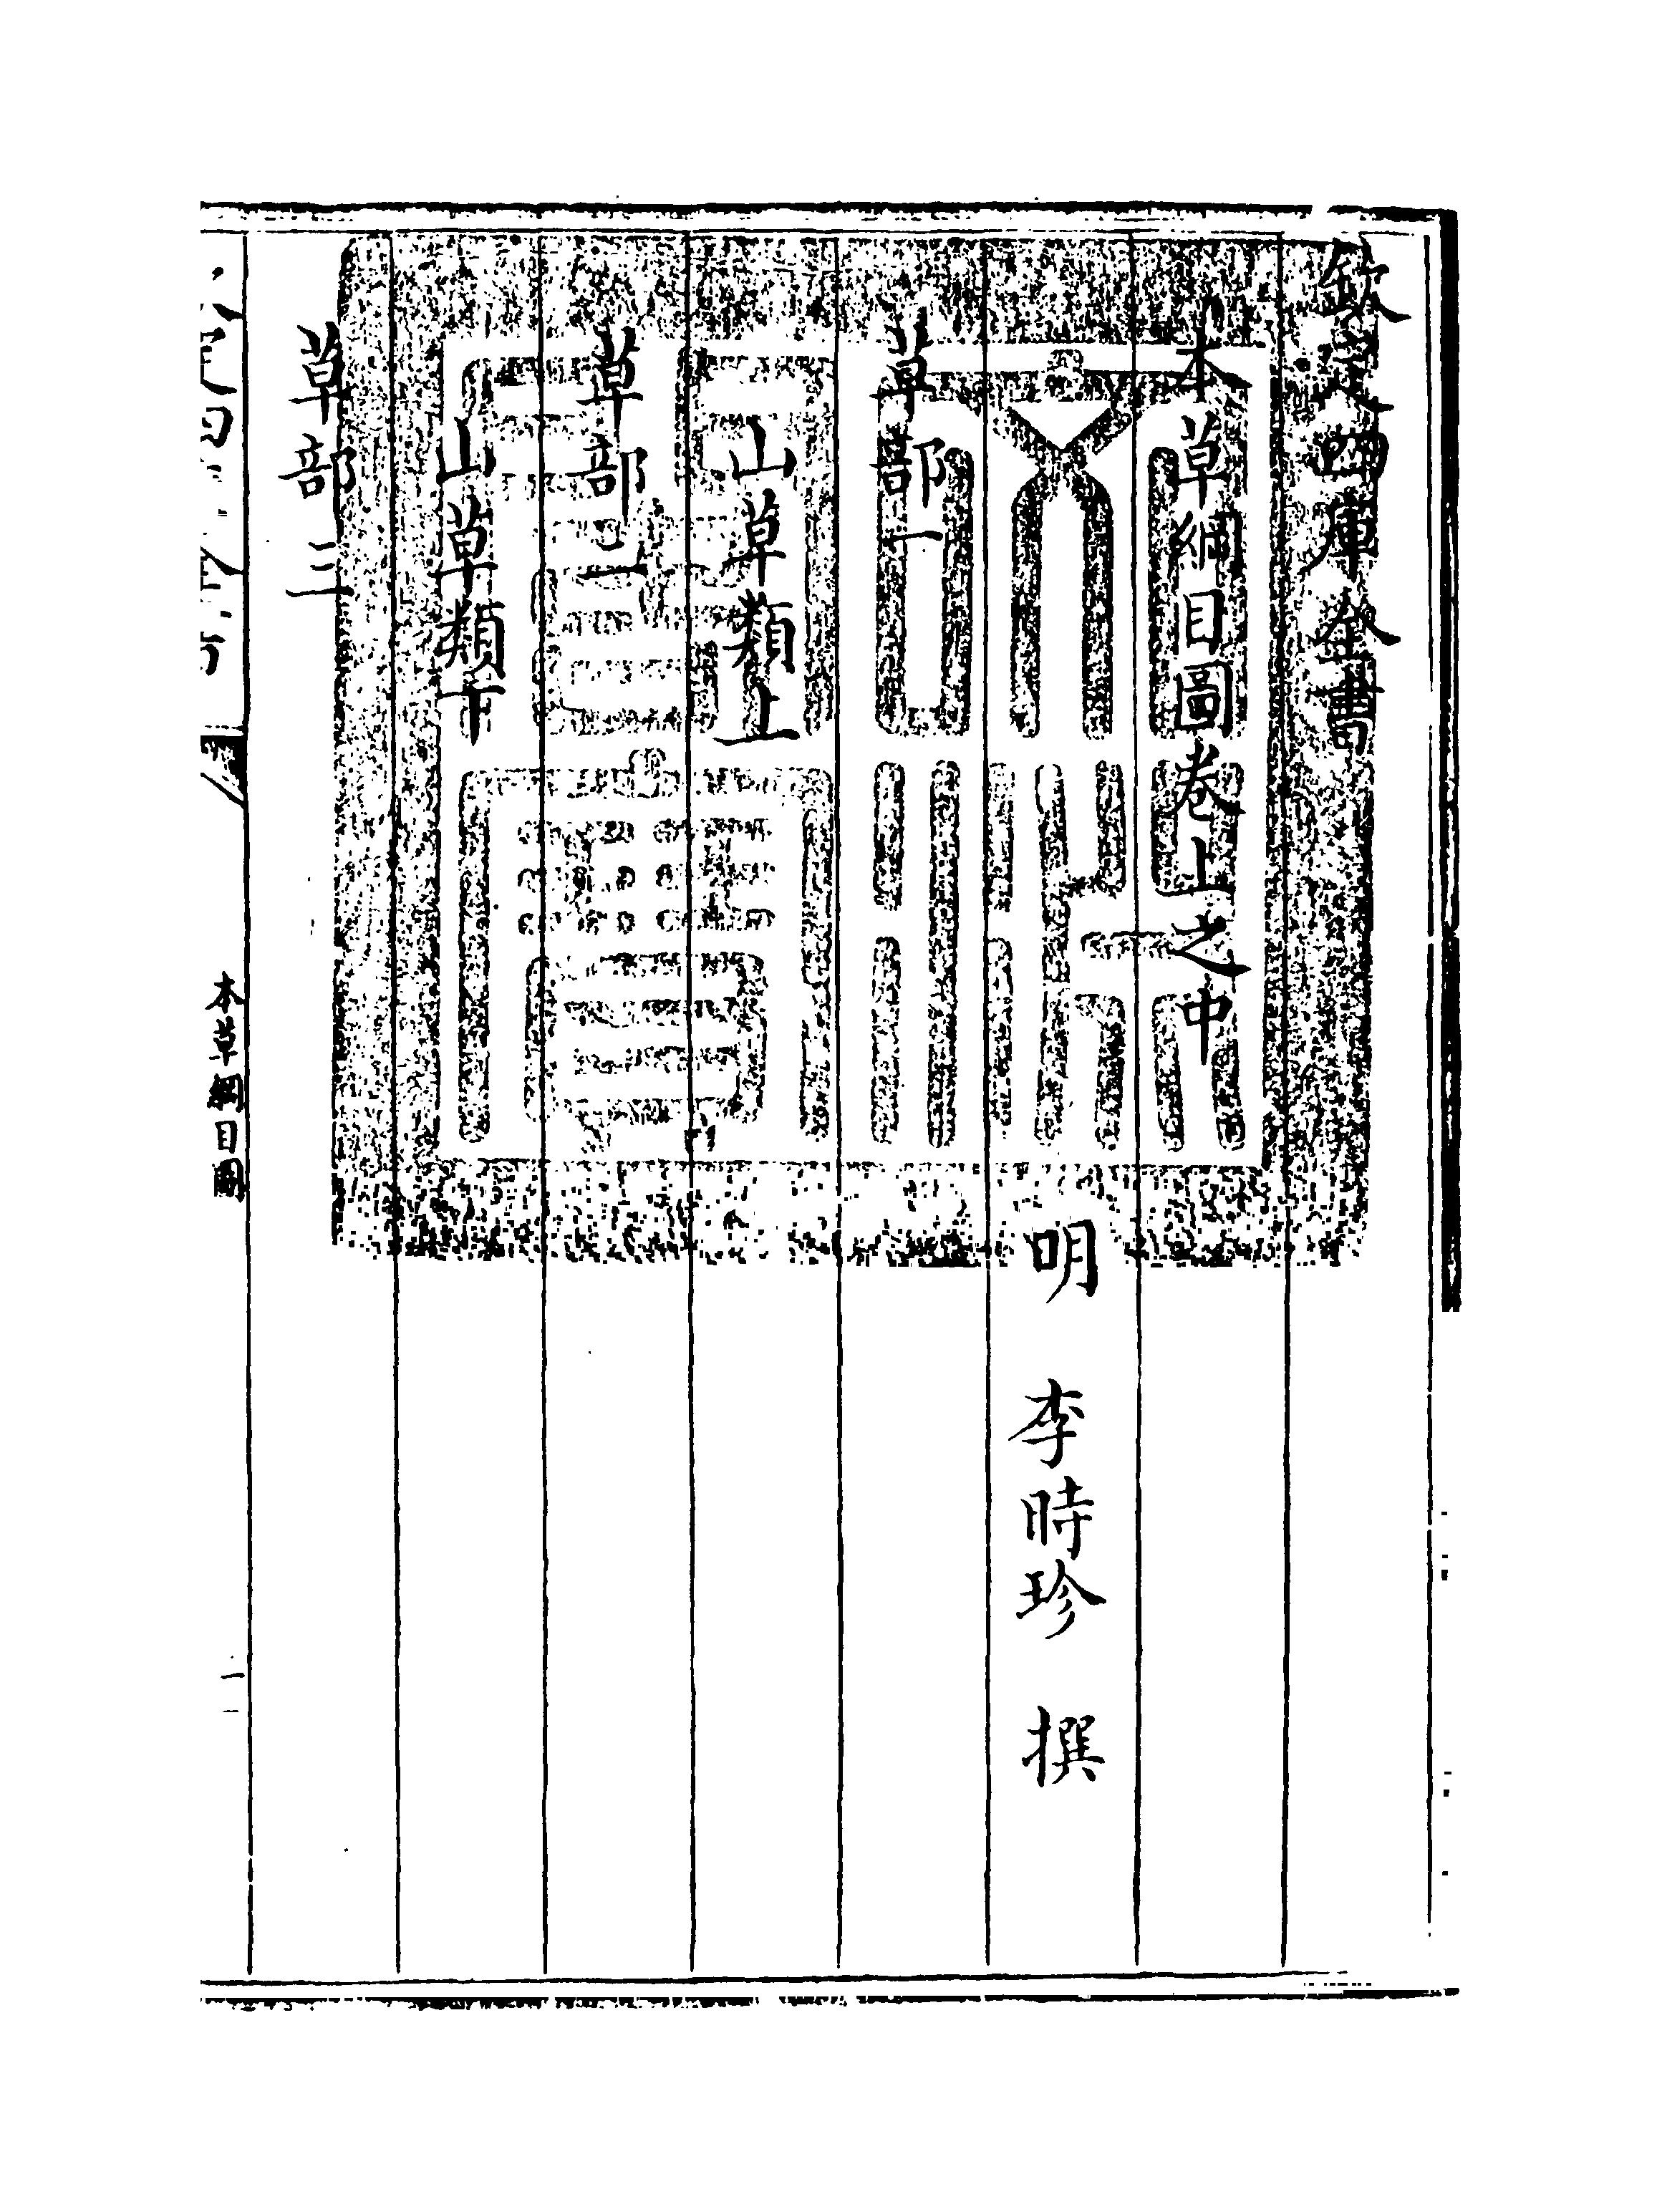 欽定四庫全書
本草綱目圖卷上之中
明 李時珍 撰
草部一
山草類上
草部二
山草類下
草部三
本草綱目圖